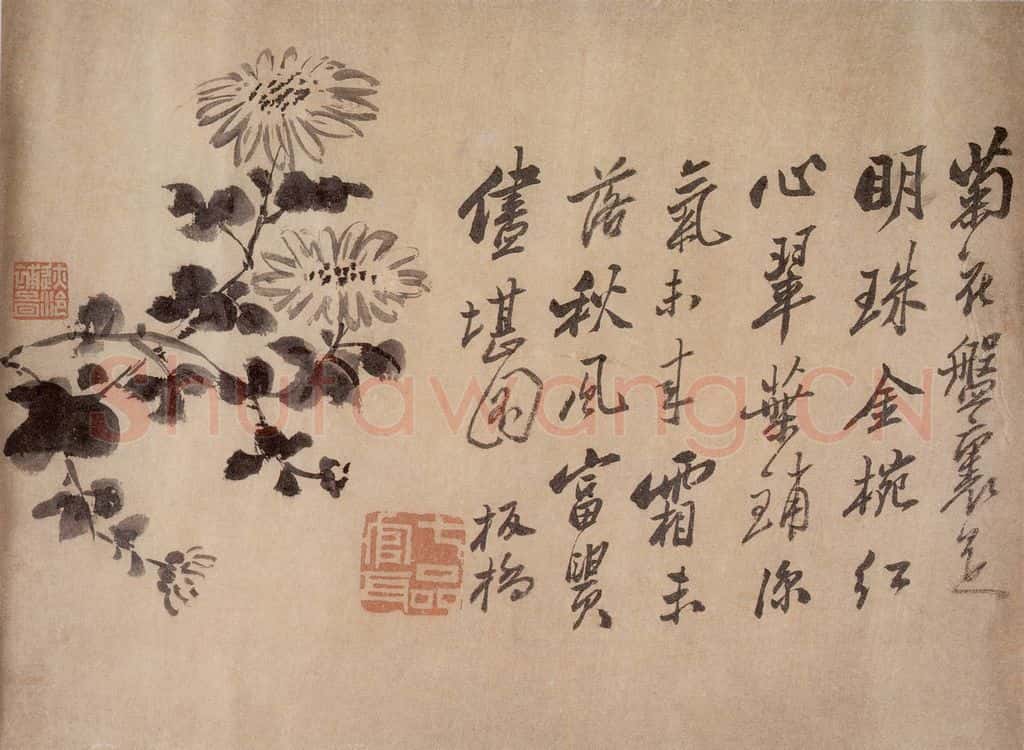 菊花盤裏走
明珠金椀紅
心翠葉鋪深
氣未来霜未
落秋風富貴
儘堪圖 板橋
七品官耳
Shufawang.CN